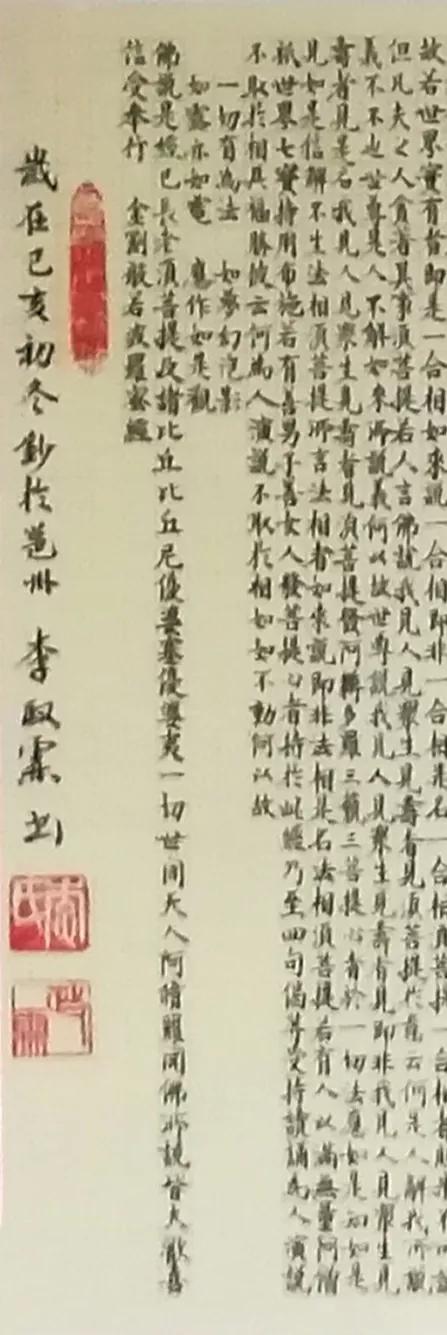 故若世界實有者即是一合相如來說一合相即非一合相是名一合相須菩提一合相者則是不可說
但凡夫之人貪著其事須菩提若人言佛說我見人見眾生見壽者見須菩提於意云何是人解我所說
義不不也世尊是人不解如來所說義何以故世尊說我見人見眾生見壽者見即非我見人見眾生見
壽者見是名我見人見眾生見壽者見須菩提發阿耨多羅三藐三菩提心者於一切法應如是知如是
見如是信解不生法相須菩提所言法相者如來說即非法相是名法相須菩提若有人以滿無量阿僧
祇世界七寶持用布施若有善男子善女人發菩提心者持於此經乃至四句偈等受持讀誦為人演說
不取於相其福勝彼云何為人演說不取於相如如不動何以故
一切有為法 如夢幻泡影
如露亦如電 應作如是觀
佛說是經已長老須菩提及諸比丘比丘尼優婆塞優婆夷一切世間天人阿脩羅聞佛所說皆大歡喜
信受奉行 金剛般若波羅蜜經
歲在己亥初冬鈔於邕州 李政霖書
李氏
政霖